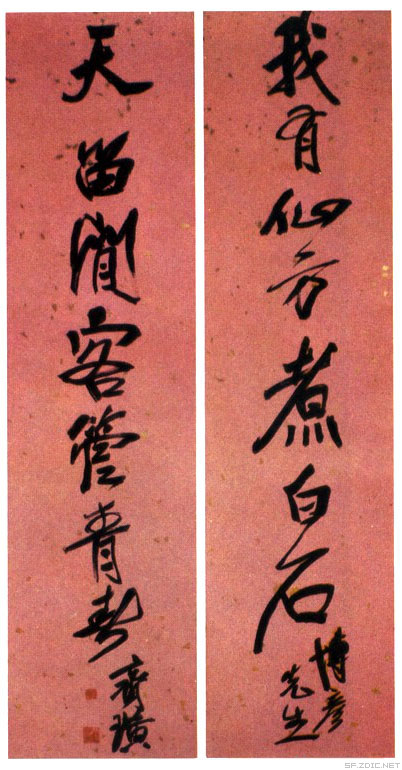 我有仙方煮白石
博彥
先生
天留閒客管青春
齊璜
SF.ZDIC.NET